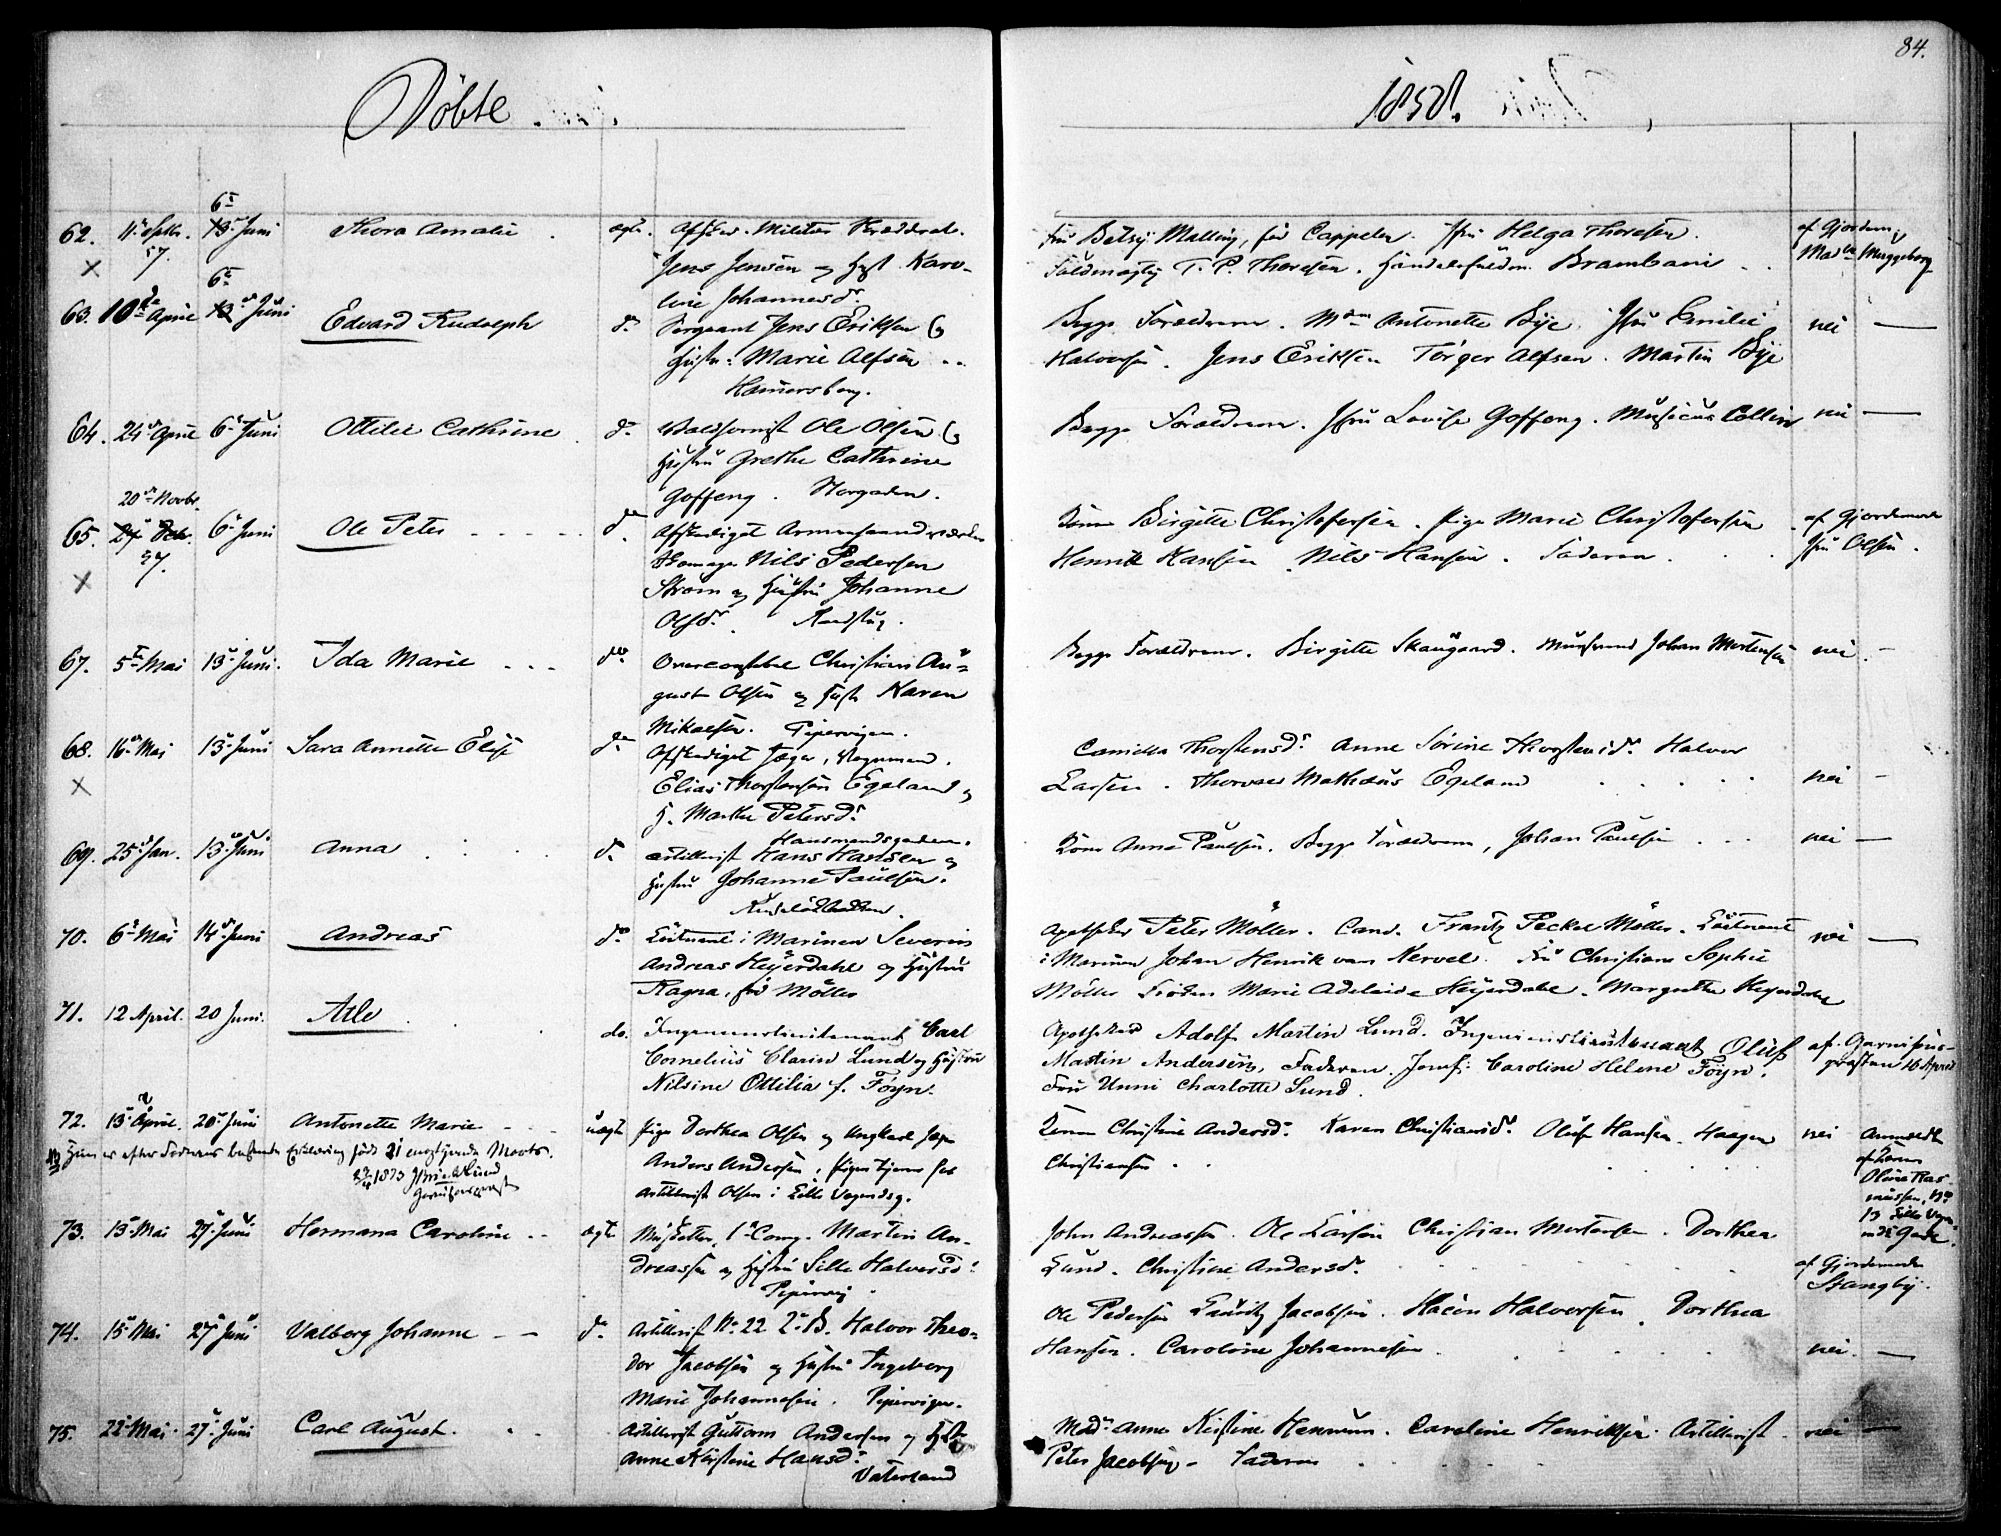 84.
Döbte
1858.
6t
62. 11t Septbr. 13 Juni Thora Amalie ægte. Afsked. Militær
57.
Jens Jensen og Hust. Karo-
line Johannesdr.
Fru Betsy Malling, föd Cappelen. Jfru Helga Thoresen.
T. P. Thoresen. Brambani
af Gjordem.
Mad. Muggeborg
6t
63. 10de April 13 Juni Edvard Rudolph do. Sergeant Jens Eriksen og
Hustru: Marie Alfsen
Hamersborg.
Begge Forældrene. Mdm Antonette Bye. Jfru Emilie
Halvorsen. Jens Eriksen Torger Alfsen. Martin Bye
nei
64. 24 April 6 Juni Ottilie Cathrine do. Valdhornist Ole Olsen og
Hustru Grethe Cathrine
Goffeng.
Begge Forældrene. Jfru Lovise Goffeng. Musicus Collin
nei
20de Novbr.
65. 6 Juni Ole Peter do. Afskediget
57.
Nils Pedersen
Ström og Hustru Johanne
Olsdr.
Kone Birgitte Christofersen. Pige Marie Christofersen
Henrik Hansen Nils Hansen. Faderen.
af Gjordemode
Jfru Olsen.
67. 5t Mai 13 Juni. Ida Marie do. Overconstabel Christian Au-
gust Olsen og Hust. Karen
Mikaelsen. Pipervigen.
Begge Forældrene. Birgitte Skaugaard. Johan Mortensen
nei.
68. 16 Mai 13 Juni Sara Annette Elise do. Afskediget Jæger, Vognmand.
Elias Thorstensen Egeland og
H. Marthe Petersdr.
Hausmandsgaden.
Camilla Thorstensdr. Anne Sörine Thorstensdr. Halvor
Larsen. Thorvald Mathæus Egeland
nei
69. 25 Jan. 13 Juni Anna do. Artillerist Hans Hansen og
Hustru Johanne Paulsen.
Kone Anna Paulsen. Begge Forældrene, Johan Paulsen
nei
70. 6 Mai 14 Juni Andreas do. Lieutnant i Marinen Severin
Andreas Heyerdahl og Hustru
Ragna, föd Möller
Apotheker Peter Möller. Cand. Frantz Peckel Möller. Lieutnant
i Marinen Johan Henrik van Kervel. Fru Christiane Sophie
Möller Fröken Marie Adelaide Heyerdahl. Margrethe Heyerdahl
nei
71. 12 April. 20 Juni. Atle do. Ingenieurlieutenant Carl
Cornelius Clarin Lund og Hustru
Nilsine Ottilia f. Föyn.
Apotheker Adolf Martin Lund. Ingenieurlieutenant Oluf
Martin Andersen, Faderen. Jomf: Caroline Helene Föyn,
Fru Unni Charlotte Lund.
af Garnisons-
præsten 16 April
72. 13 April. 20 Juni Antonette Marie uægte Pige Dorthea Olsen og Ungkarl Jæger
Anders Andersen, Pigen tjener hos
Artillerist Olsen i Lille Vognmdsg.
NB Hun er efter Faderens Erklæring født 21
1873
Garnisonspræst
Konen Christine Andersdr. Karen Christiansdr. Oluf Hansen. Haagen
Christiansen
nei
Anmeldt
af Konen
Oline Ras-
mussen, No
13 Lille Vogn-
mds Gade.
73. 13 Mai 27 Juni Hermana Caroline ægte Musketter, 1 Comp. Martin An-
dreassen og Hustru Sille Halvorsdr.
Pipervig
John Andreassen. Ole Larsen Christian Mortensen. Dorthea
Lund. Christine Andersdr.
af Gjordemode
Stangby.
74. 15 Mai 27 Juni Valborg Johanne do. Artillerist No. 22 2 B. Halvor Theo-
dor Jacobsen og Hustru Ingeborg
Marie Johannesen. Pipervigen.
Ole Pedersen Lauritz Jacobsen. Hacon Halvorsen. Dorthea
Hansen. Caroline Johannesen.
nei.
75. 22 Mai. 27 Juni Carl August. Artillerist Guttorm Andersen og Hust.
Anne Kirstine Hansdr.
Vaterland
Mad. Anne Kirstine Caroline Henriksen. Artillerist
Peter Jacobsen. Faderen
nei